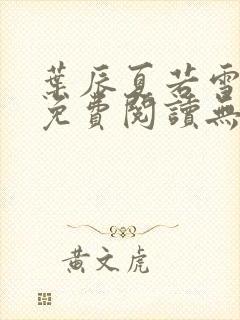 葉辰夏若雪
免費閱讀無
黃文虎